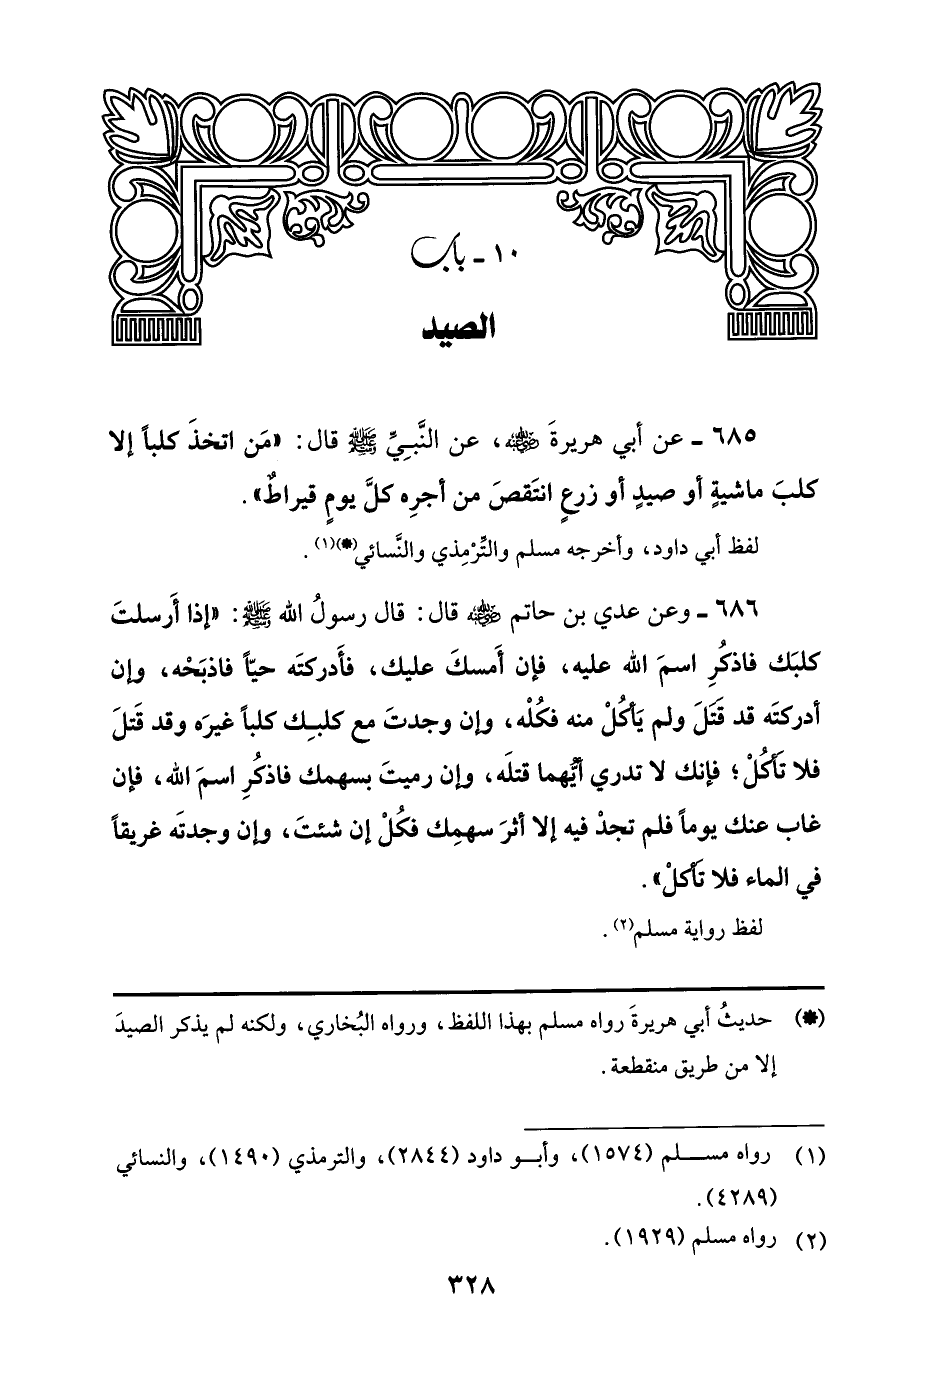 ١٠ - باب
الصيد
٦٨٥ - عن أبي هريرةَ رضي الله عنه، عن النَّبيِّ ﷺ قال: «مَن اتخذَ كلباً إلا
كلبَ ماشيةٍ أو صيدٍ أو زرعٍ انتَقصَ من أجرِه كلَّ يومٍ قيراطٌ».
لفظ أبي داود، وأخرجه مسلم والتِّرْمِذي والنَّسائي(*)(١).
٦٨٦ - وعن عدي بن حاتم رضي الله عنه قال: قال رسولُ الله ﷺ: «إذا أَرسلتَ
كلبَك فاذكُرِ اسمَ الله عليه، فإن أَمسكَ عليك، فأَدركتَه حيّاً فاذبَحْه، وإن
أدركتَه قد قَتَلَ ولم يَأكُلْ منه فكُلْه، وإن وجدتَ مع كلبِك كلباً غيرَه وقد قَتلَ
فلا تَأكُلْ؛ فإنك لا تدري أيُّهما قتلَه، وإن رميتَ بسهمك فاذكُرِ اسمَ الله، فإن
غاب عنك يوماً فلم تجدْ فيه إلا أثرَ سهمِك فكُلْ إن شئتَ، وإن وجدتَه غريقاً
في الماء فلا تَأكلْ».
لفظ رواية مسلم(٢).
(*) حديثُ أبي هريرةَ رواه مسلم بهذا اللفظ، ورواه البُخاري، ولكنه لم يذكر الصيدَ
إلا من طريق منقطعة.
(١) رواه مسلم (١٥٧٤)، وأبو داود (٢٨٤٤)، والترمذي (١٤٩٠)، والنسائي
(٤٢٨٩).
(٢) رواه مسلم (١٩٢٩).
٣٢٨